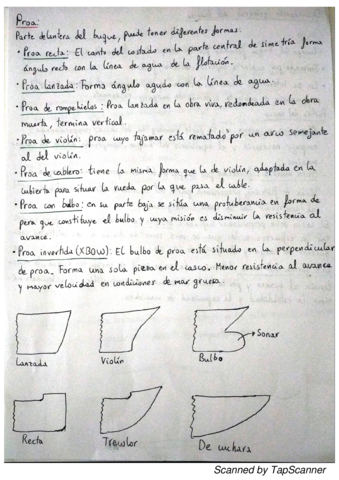 Proa:
Parte delantera del buque, puede tener diferentes formas:
• Proa recta: El canto del costado en la parte central de simetría forma
ángulo recto con la línea de agua de la flotación.
• Proa lanzada: Forma ángulo agudo con la línea de agua.
• Proa de rompehielos: Proa lanzada en la obra viva, redondeada en la obra
muerta, termina vertical.
• Proa de violín: proa cuyo tajamar está rematado por un arco semejante
al del violín.
• Proa de cablero: tiene la misma forma que la de violín, adaptada en la
cubierta para situar la rueda por la que pasa el cable.
• Proa con bulbo: en su parte baja se sitúa una protuberancia en forma de
pera que constituye el bulbo y cuya misión es disminuir la resistencia al
avance.
• Proa invertida (XBOW): El bulbo de proa está situado en la perpendicular
de proa. Forma una sola pieza en el casco. Menor resistencia al avance
y mayor velocidad en condiciones de mar gruesa
Sonar
Lanzada Violín Bulbo
Recta De cuchara
Scanned by TapScanner